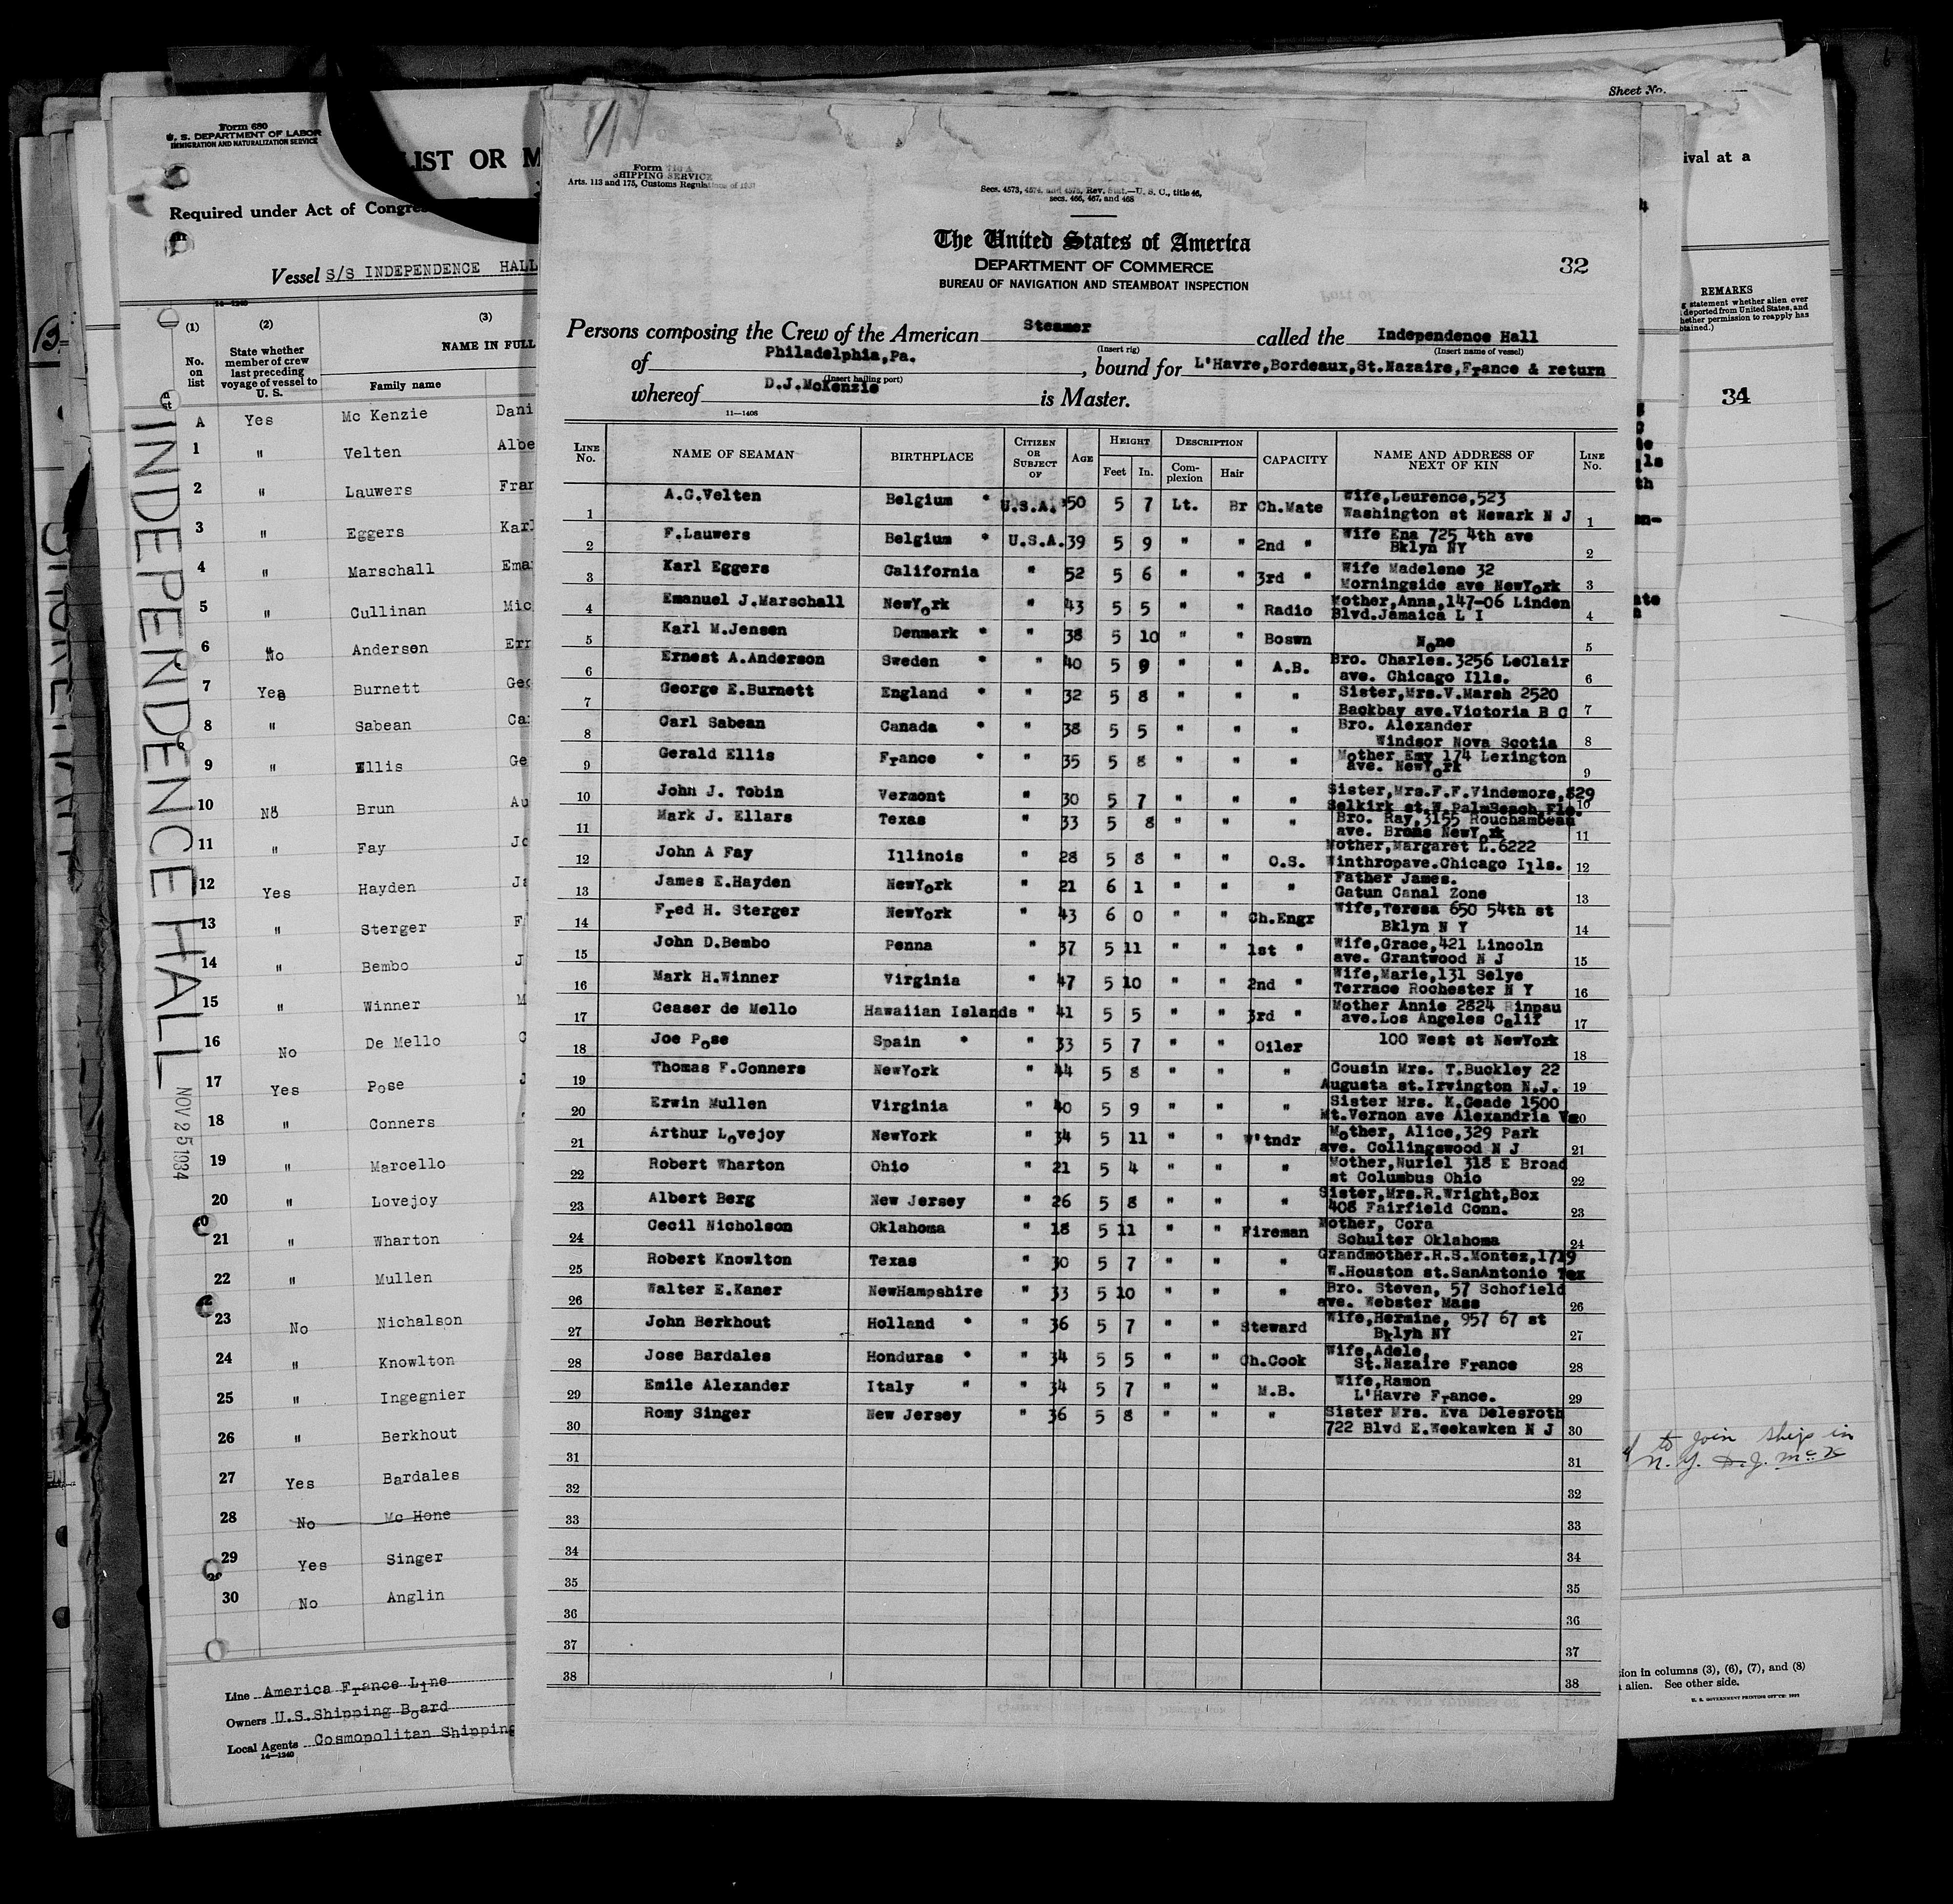 Sheet No.
Form 680
U. S. DEPARTMENT OF LABOR
IMMIGRATION AND NATURALIZATION SERVICE
LIST OR M
Required under Act of Congre
Vessel S/S INDEPENDENCE HALL
14—1240
(1) (2) (3)
No. on list
State whether member of crew last preceding voyage of vessel to U. S.
NAME IN FULL
Family name
A Yes Mc Kenzie Dani
1 " Velten Albe
2 " Lauwers Fran
3 " Eggers Karl
4 " Marschall Ema
5 " Cullinan Mic
6 No Anderson Ern
7 Yes Burnett Geo
8 " Sabean Ca
9 " Ellis Ge
10 No Brun Au
11 " Fay Jo
12 Yes Hayden Ja
13 " Sterger F
14 " Bembo J
15 " Winner M
16 No De Mello C
17 Yes Pose J
18 " Conners
19 " Marcello
20 " Lovejoy
21 " Wharton
22 " Mullen
23 No Nichalson
24 " Knowlton
25 " Ingegnier
26 " Berkhout
27 Yes Bardales
28 No Mc Hone
29 Yes Singer
30 No Anglin
Line America France Line
Owners U.S.Shipping Board
Local Agents Cosmopolitan Shipping
14—1240
INDEPENDENCE HALL
NOV 25 1934
Form 710 A
SHIPPING SERVICE
Arts. 113 and 175, Customs Regulations of 1931
Secs. 4573, 4574, and 4575, Rev. Stat.—U. S. C., title 46,
secs. 466, 467, and 468
The United States of America
DEPARTMENT OF COMMERCE
BUREAU OF NAVIGATION AND STEAMBOAT INSPECTION
32
Persons composing the Crew of the American Steamer called the Independence Hall
(Insert rig) (Insert name of vessel)
of Philadelphia,Pa. , bound for L'Havre,Bordeaux,St.Nazaire,France & return
(Insert hailing port)
whereof D.J.McKenzie is Master.
11—1408
LINE No. NAME OF SEAMAN BIRTHPLACE CITIZEN OR SUBJECT OF AGE HEIGHT DESCRIPTION CAPACITY NAME AND ADDRESS OF NEXT OF KIN LINE No.
Feet In. Complexion Hair
1 A.G.Velten Belgium * U.S.A. 50 5 7 Lt. Br Ch.Mate Wife,Leurence,523 Washington st Newark N J 1
2 F.Lauwers Belgium * U.S.A. 39 5 9 " " 2nd " Wife Ena 725 4th ave Bklyn NY 2
3 Karl Eggers California " 52 5 6 " " 3rd " Wife Madelene 32 Morningside ave NewYork 3
4 Emanuel J.Marschall NewYork " 43 5 5 " " Radio Mother,Anna,147-06 Linden Blvd.Jamaica L I 4
5 Karl M.Jensen Denmark * " 38 5 10 " " Boswn None 5
6 Ernest A.Anderson Sweden * " 40 5 9 " " A.B. Bro. Charles.3256 LeClair ave. Chicago Ills. 6
7 George E.Burnett England * " 32 5 8 " " " Sister,Mrs.V.Marsh 2520 Backbay ave.Victoria B C 7
8 Carl Sabean Canada * " 38 5 5 " " " Bro. Alexander Windsor Nova Scotia 8
9 Gerald Ellis France * " 35 5 8 " " " Mother Emy 174 Lexington ave. NewYork 9
10 John J. Tobin Vermont " 30 5 7 " " " Sister,Mrs.F.F.Vindemore,829 Selkirk st.W.PalmBeach,Fla. 10
11 Mark J. Ellars Texas " 33 5 8 " " " Bro. Ray,3155 Rouchambeau ave. Bronx NewYork 11
12 John A Fay Illinois " 28 5 8 " " O.S. Mother,Margaret L.6222 Winthropave.Chicago Ills. 12
13 James E.Hayden NewYork " 21 6 1 " " " Father James. Gatun Canal Zone 13
14 Fred H. Sterger NewYork " 43 6 0 " " Ch.Engr Wife,Teresa 650 54th st Bklyn N Y 14
15 John D.Bembo Penna " 37 5 11 " " 1st " Wife,Grace,421 Lincoln ave. Grantwood N J 15
16 Mark H.Winner Virginia " 47 5 10 " " 2nd " Wife,Marie,131 Selye Terrace Rochester N Y 16
17 Ceaser de Mello Hawaiian Islands " 41 5 5 " " 3rd " Mother Annie 2824 Rinpau ave.Los Angeles Calif 17
18 Joe Pose Spain * " 33 5 7 " " Oiler 100 West st NewYork 18
19 Thomas F.Conners NewYork " 44 5 8 " " " Cousin Mrs. T.Buckley 22 Augusta st.Irvington N.J. 19
20 Erwin Mullen Virginia " 40 5 9 " " " Sister Mrs. K.Geade 1500 Mt.Vernon ave Alexandria Va 20
21 Arthur Lovejoy NewYork " 34 5 11 " " W'tndr Mother, Alice,329 Park ave. Collingswood N J 21
22 Robert Wharton Ohio " 21 5 4 " " " Mother,Nuriel 318 E Broad st Columbus Ohio 22
23 Albert Berg New Jersey " 26 5 8 " " " Sister,Mrs.R.Wright,Box 408 Fairfield Conn. 23
24 Cecil Nicholson Oklahoma " 18 5 11 " " Fireman Mother, Cora Schulter Oklahoma 24
25 Robert Knowlton Texas " 30 5 7 " " " Grandmother.R.S.Montez,1719 W.Houston st.SanAntonio Tex
26 Walter E.Kaner NewHampshire " 33 5 10 " " " Bro. Steven, 57 Schofield ave. Webster Mass 26
27 John Berkhout Holland * " 36 5 7 " " Steward Wife,Hermine, 957 67 st Bklyn NY 27
28 Jose Bardales Honduras * " 34 5 5 " " Ch.Cook Wife,Adele, St.Nazaire France 28
29 Emile Alexander Italy " " 34 5 7 " " M.B. Wife,Ramon L'Havre France. 29
30 Romy Singer New Jersey " 36 5 8 " " " Sister Mrs. Eva Delesroth 722 Blvd E.Weekawken N J 30
31 31
32 32
33 33
34 34
35 35
36 36
37 37
38 38
ival at a
REMARKS
statement whether alien ever
deported from United States, and
whether permission to reapply has
obtained.)
34
to join ship in
N. Y. D. J. McK
ion in columns (3), (6), (7), and (8)
alien. See other side.
U. S. GOVERNMENT PRINTING OFFICE